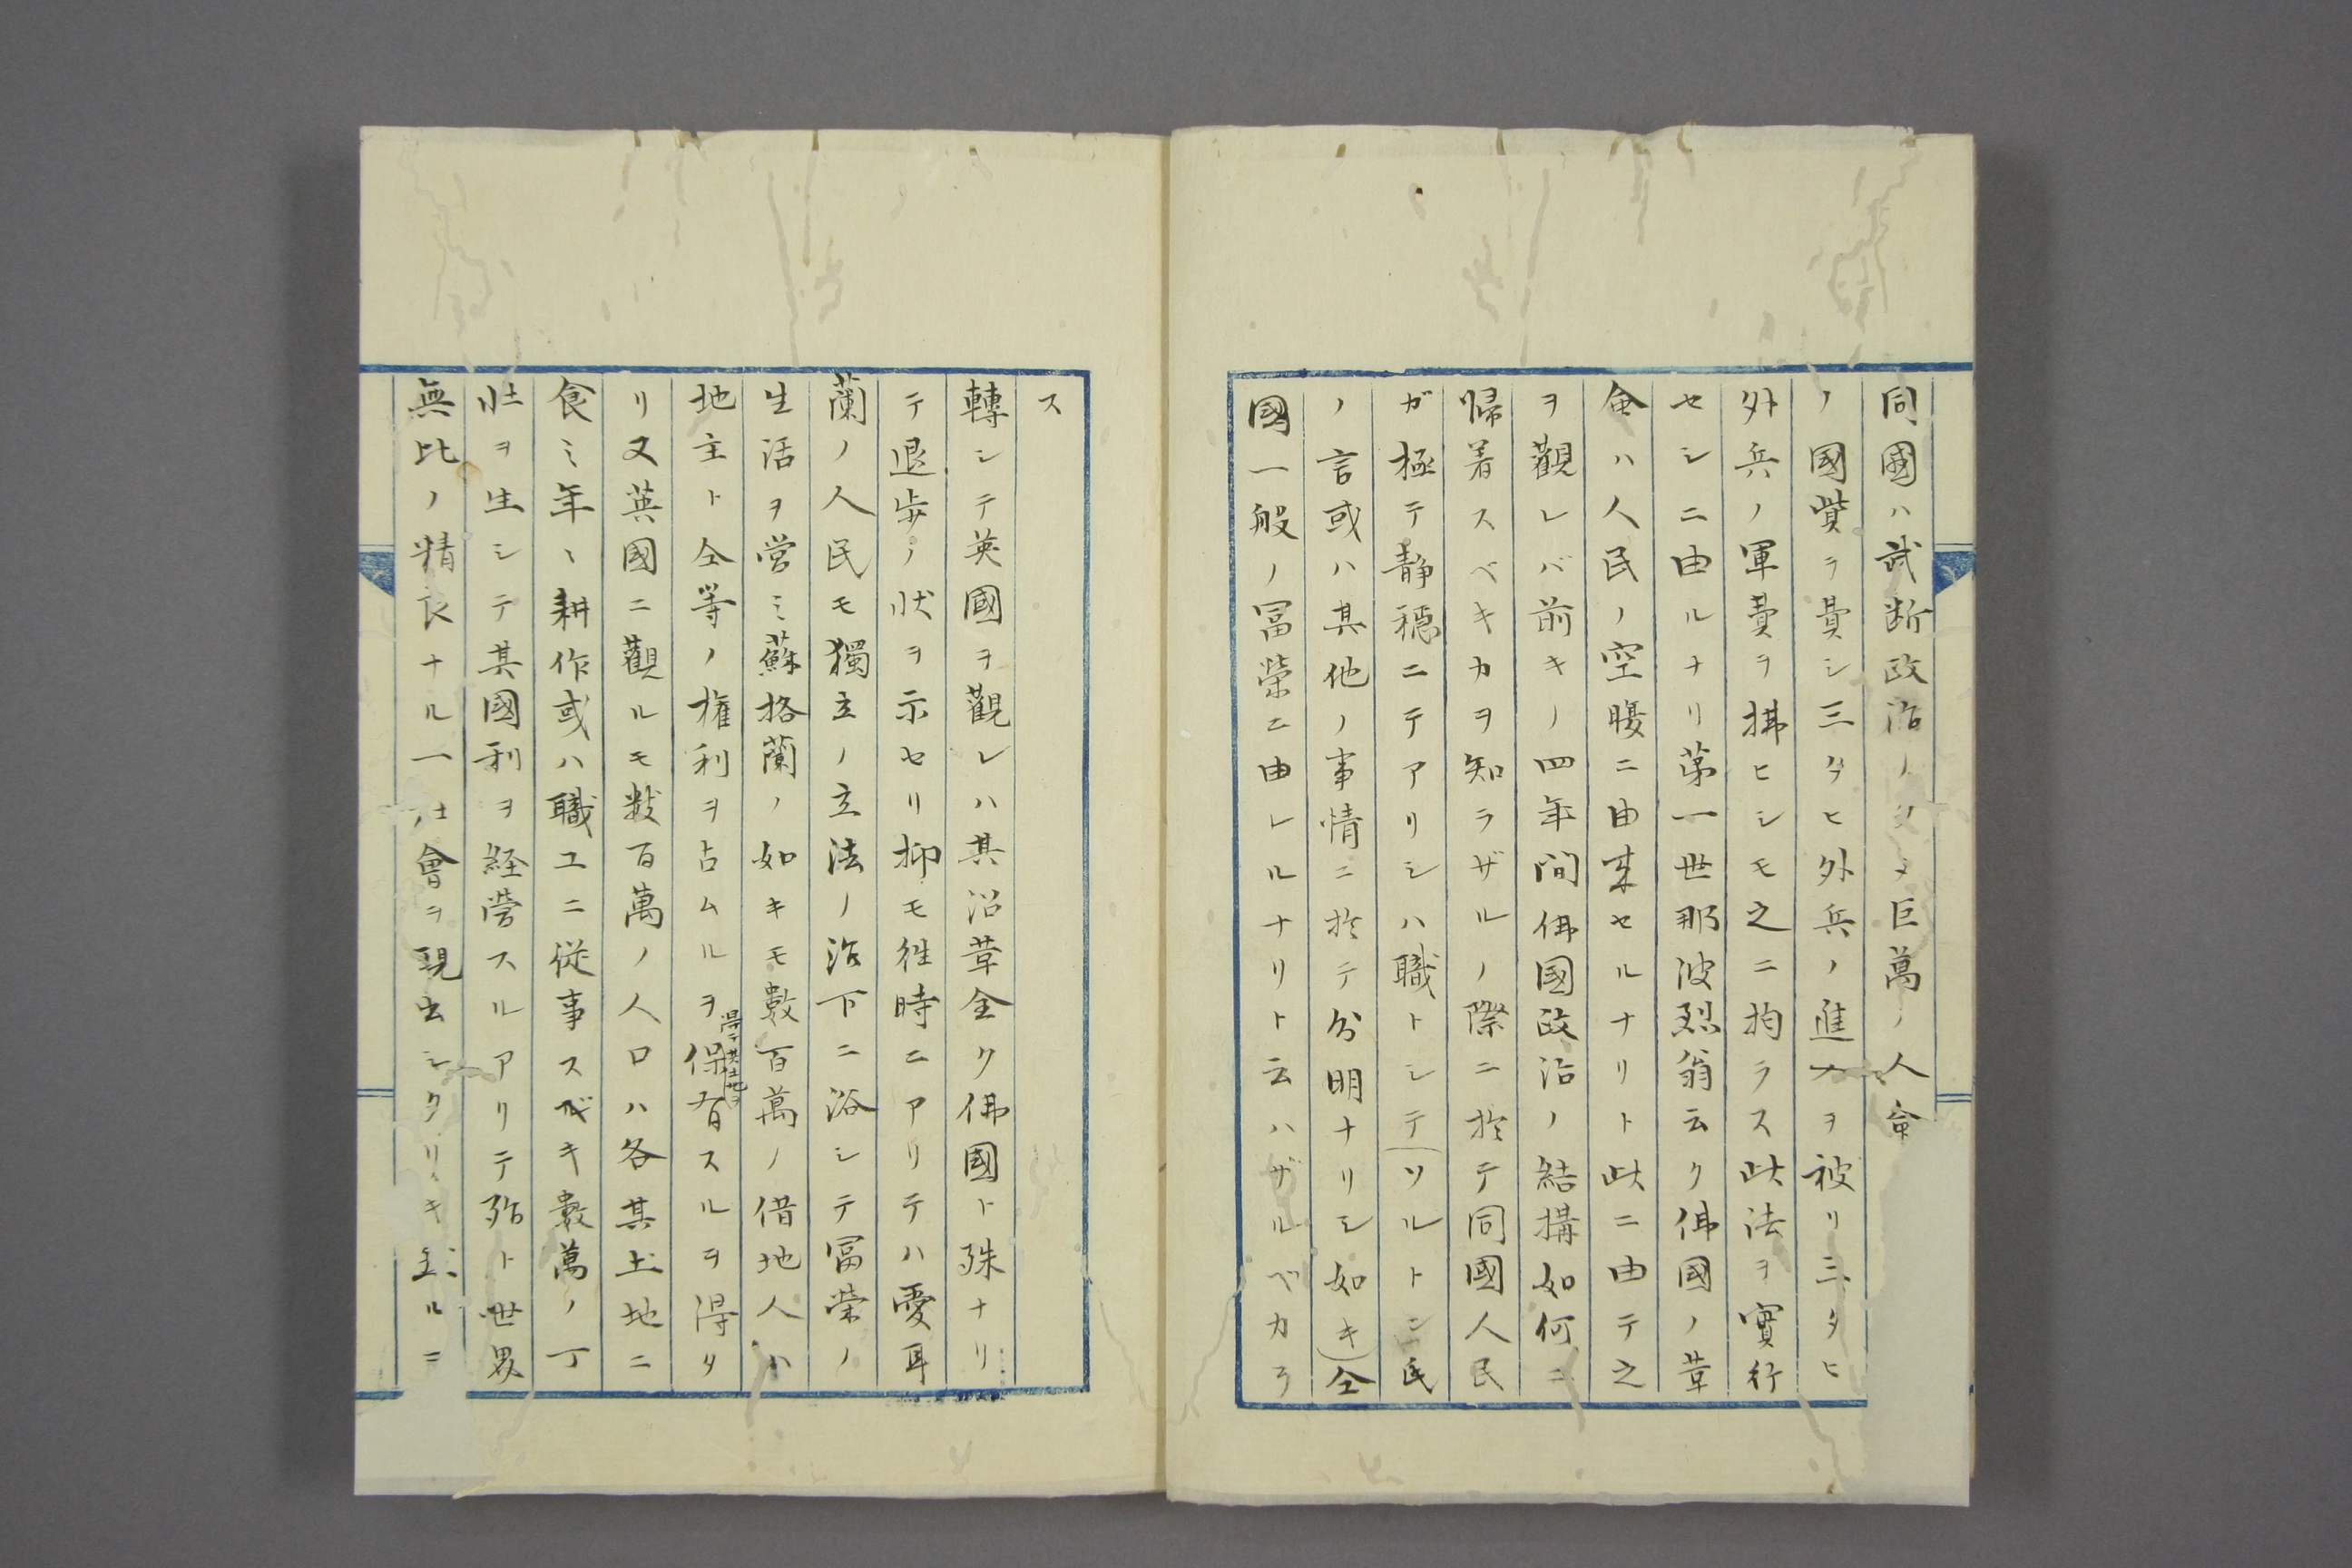 同國ハ武断政治ノタメ巨萬ノ人命
ノ國貲ヲ費シ三タヒ外兵ノ進入ヲ被リ三タヒ
外兵ノ軍費ヲ拂ヒシモ之ニ拘ラス此法ヲ實行
セシニ由ルナリ苐一世那波烈翁云ク佛國ノ革
命ハ人民ノ空腹ニ由来セルナリト此ニ由テ之
ヲ觀レバ前キノ四年間佛國政治ノ結搆如何ニ
帰着スベキカヲ知ラザルノ際ニ於テ同國人民
ガ極テ静穏ニテアリシハ職トシテソルトン氏
ノ言或ハ其他ノ事情ニ於テ分明ナリシ如キ仝
國一般ノ冨榮ニ由レルナリト云ハザルベカラ
ス
轉シテ英國ヲ觀レハ其沿革全ク佛國ト殊ナリ
テ退歩ノ状ヲ示セリ抑モ徃時ニアリテハ愛耳
蘭ノ人民モ獨立ノ立法ノ治下ニ浴シテ冨榮ノ
生活ヲ営ミ蘇格蘭ノ如キモ數百萬ノ借地人ハ
地主ト仝等ノ権利ヲ占ムルヲ得テ其土地ヲ保有スルヲ得タ
リ又英國ニ觀ルモ数百萬ノ人口ハ各其土地ニ
食ミ年々耕作或ハ職工ニ従事スベキ數萬ノ丁
壮ヲ生シテ其國利ヲ経営スルアリテ殆ト世界
無比ノ精良ナル一社會ヲ現出シタリキ然ルニ